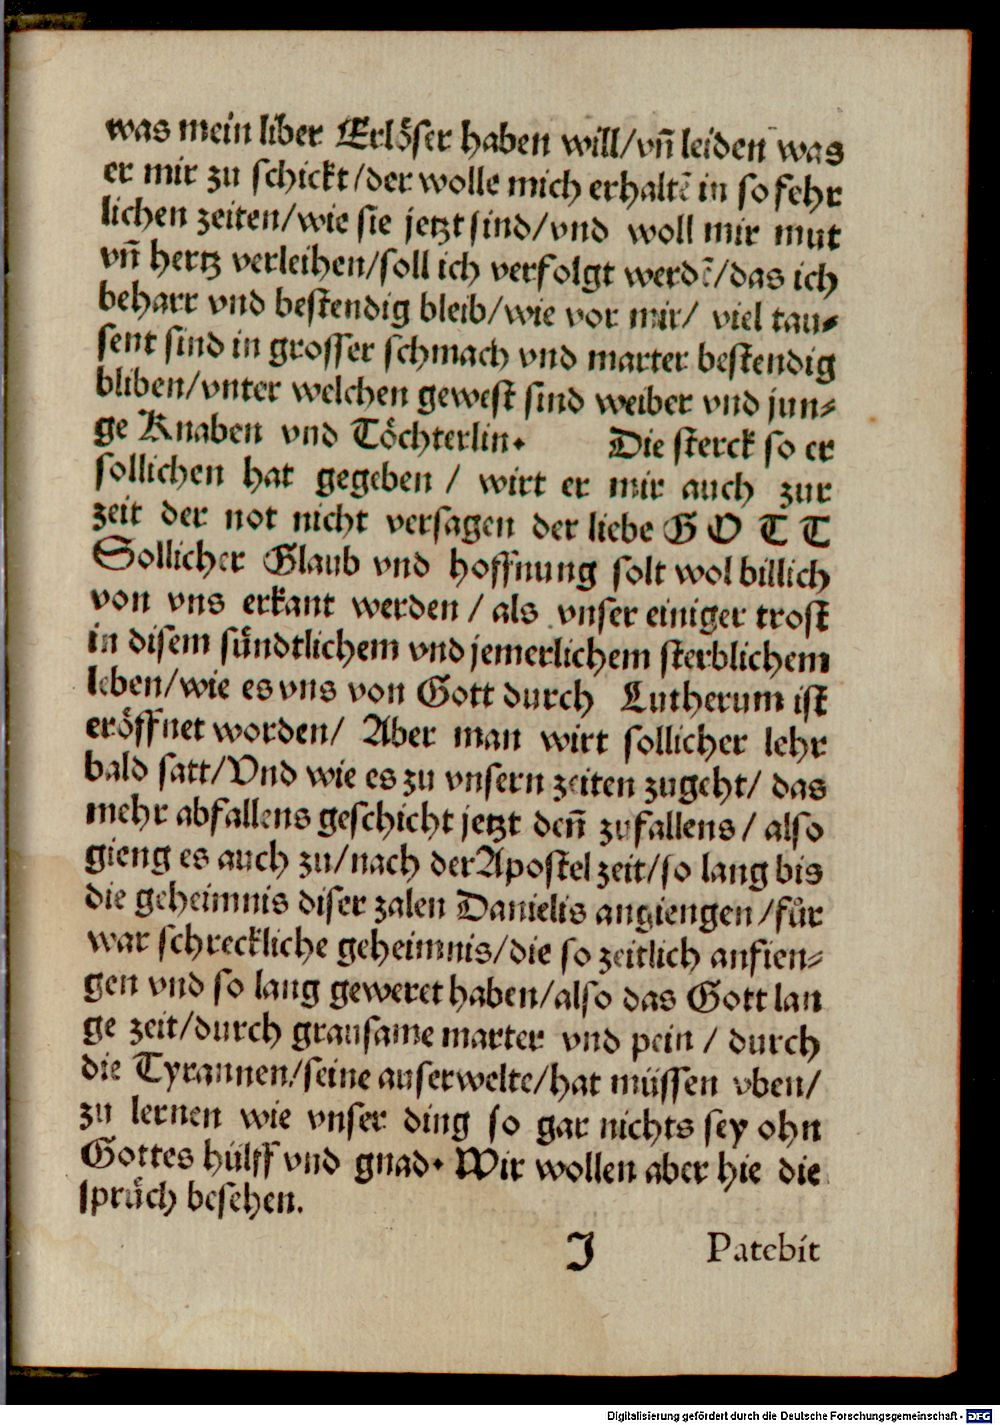 was mein liber Erlöser haben will/vñ leiden was
er mir zu schickt/der wolle mich erhaltẽ in so fehr
lichen zeiten/wie sie jetzt sind/vnd woll mir mut
vñ hertz verleihen/soll ich verfolgt werdẽ/das ich
beharr vnd bestendig bleib/wie vor mir/ viel tau⸗
sent sind in grosser schmach vnd marter bestendig
bliben/vnter welchen gewest sind weiber vnd jun⸗
ge Knaben vnd Töchterlin. Die sterck so er
sollichen hat gegeben / wirt er mir auch zur
zeit der not nicht versagen der liebe G O T T
Sollicher Glaub vnd hoffnung solt wol billich
von vns erkant werden / als vnser einiger trost
in disem sündtlichem vnd jemerlichem sterblichem
leben/wie es vns von Gott durch Lutherum ist
eröffnet worden/ Aber man wirt sollicher lehr
bald satt/Vnd wie es zu vnsern zeiten zugeht/ das
mehr abfallens geschicht jetzt deñ zufallens / also
gieng es auch zu/nach der Apostel zeit/so lang bis
die geheimnis diser zalen Danielis angiengen /für
war schreckliche geheimnis/die so zeitlich anfien⸗
gen vnd so lang geweret haben/also das Gott lan
ge zeit/durch grausame marter vnd pein / durch
die Tyrannen/seine auserwelte/hat müssen vben/
zu lernen wie vnser ding so gar nichts sey ohn
Gottes hülff vnd gnad. Wir wollen aber hie die
sprüch besehen.
J Patebit
Digitalisierung gefördert durch die Deutsche Forschungsgemeinschaft - DFG